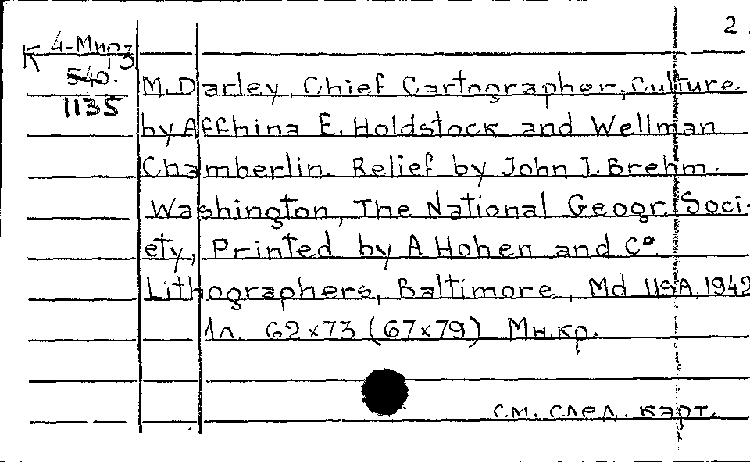 2.
К 4-Мирз
540.
1135
M. Darley, Chief Cartographer, Culture
by Affhina E. Holdstock and Wellman
Chamberlin. Relief by John J. Brehm.
Washington, The National Geogr. Soci-
ety, Printed by A Hohen and C°.
Lithographers, Baltimore, Md USA, 1942
1л. 62×73 (67×79) Микр.
см. след. карт.